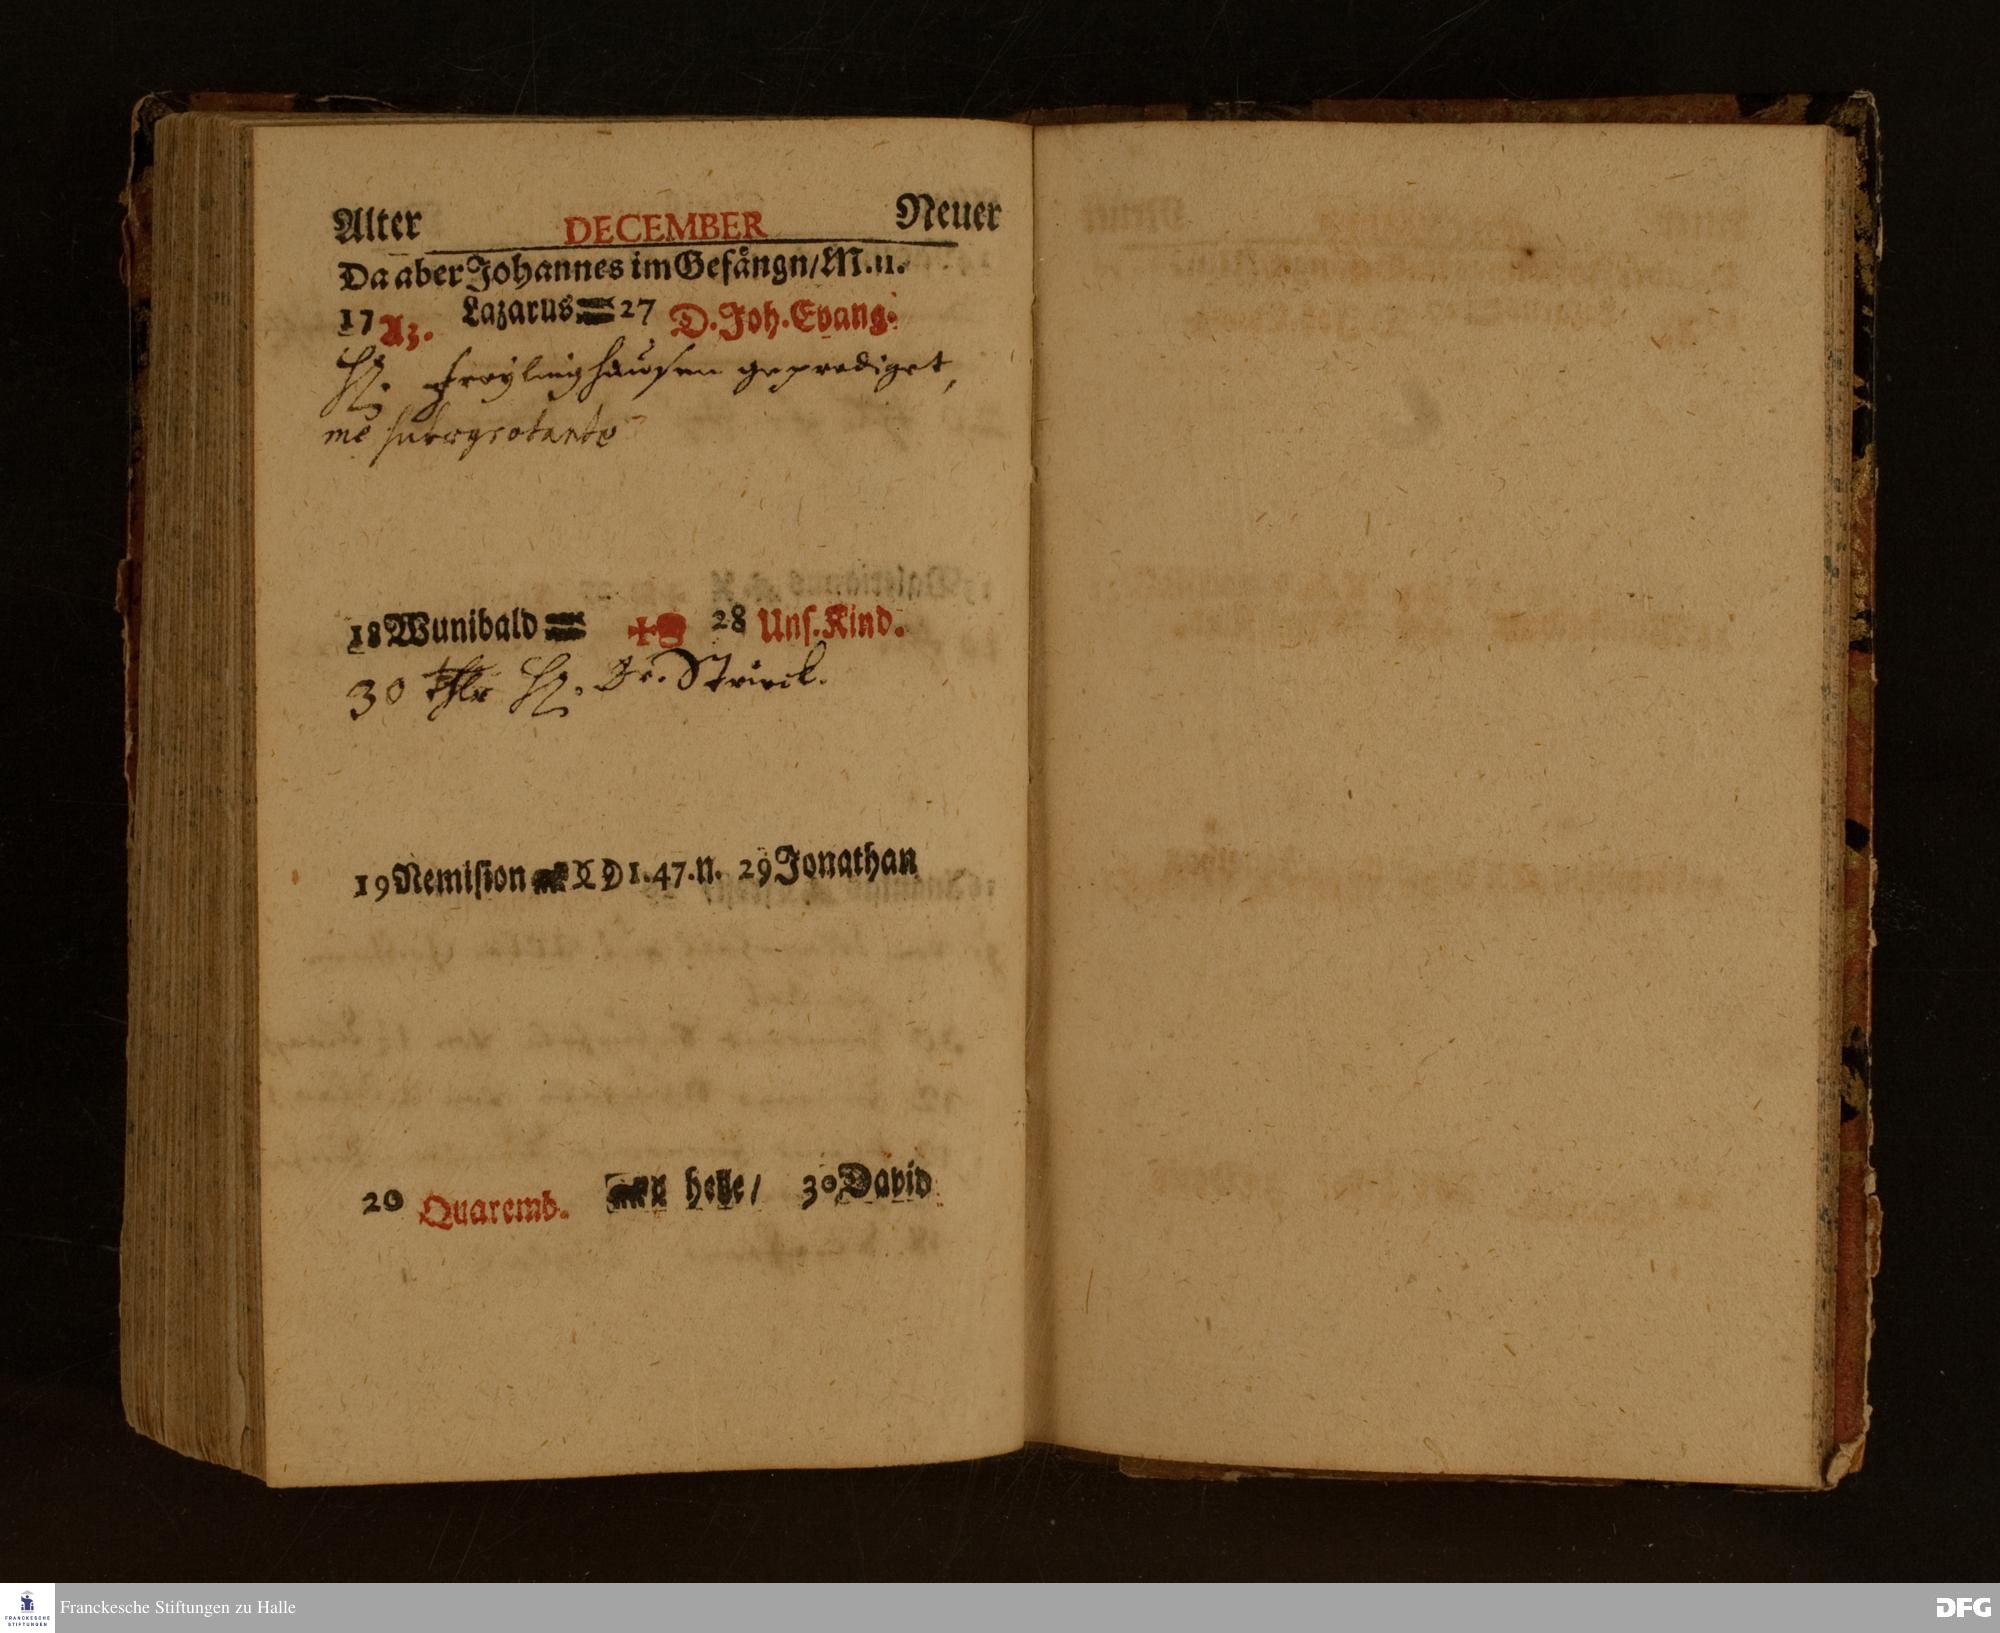 Alter DECEMBER Neuer
Da aber Johannes im Gefängn/M.11.
17 A3. Lazarus 27 D. Joh. Evang.
H. Freylinghausen geprediget,
me subaegrotante
18 Wunibald 28 Uns. Kind.
30 thlr H. Dr. Strick.
19 Nemision 1.47.n. 29 Jonathan
20 Quatemb. helle/ 30 David
Franckesche Stiftungen zu Halle
FRANCKESCHE
STIFTUNGEN
DFG